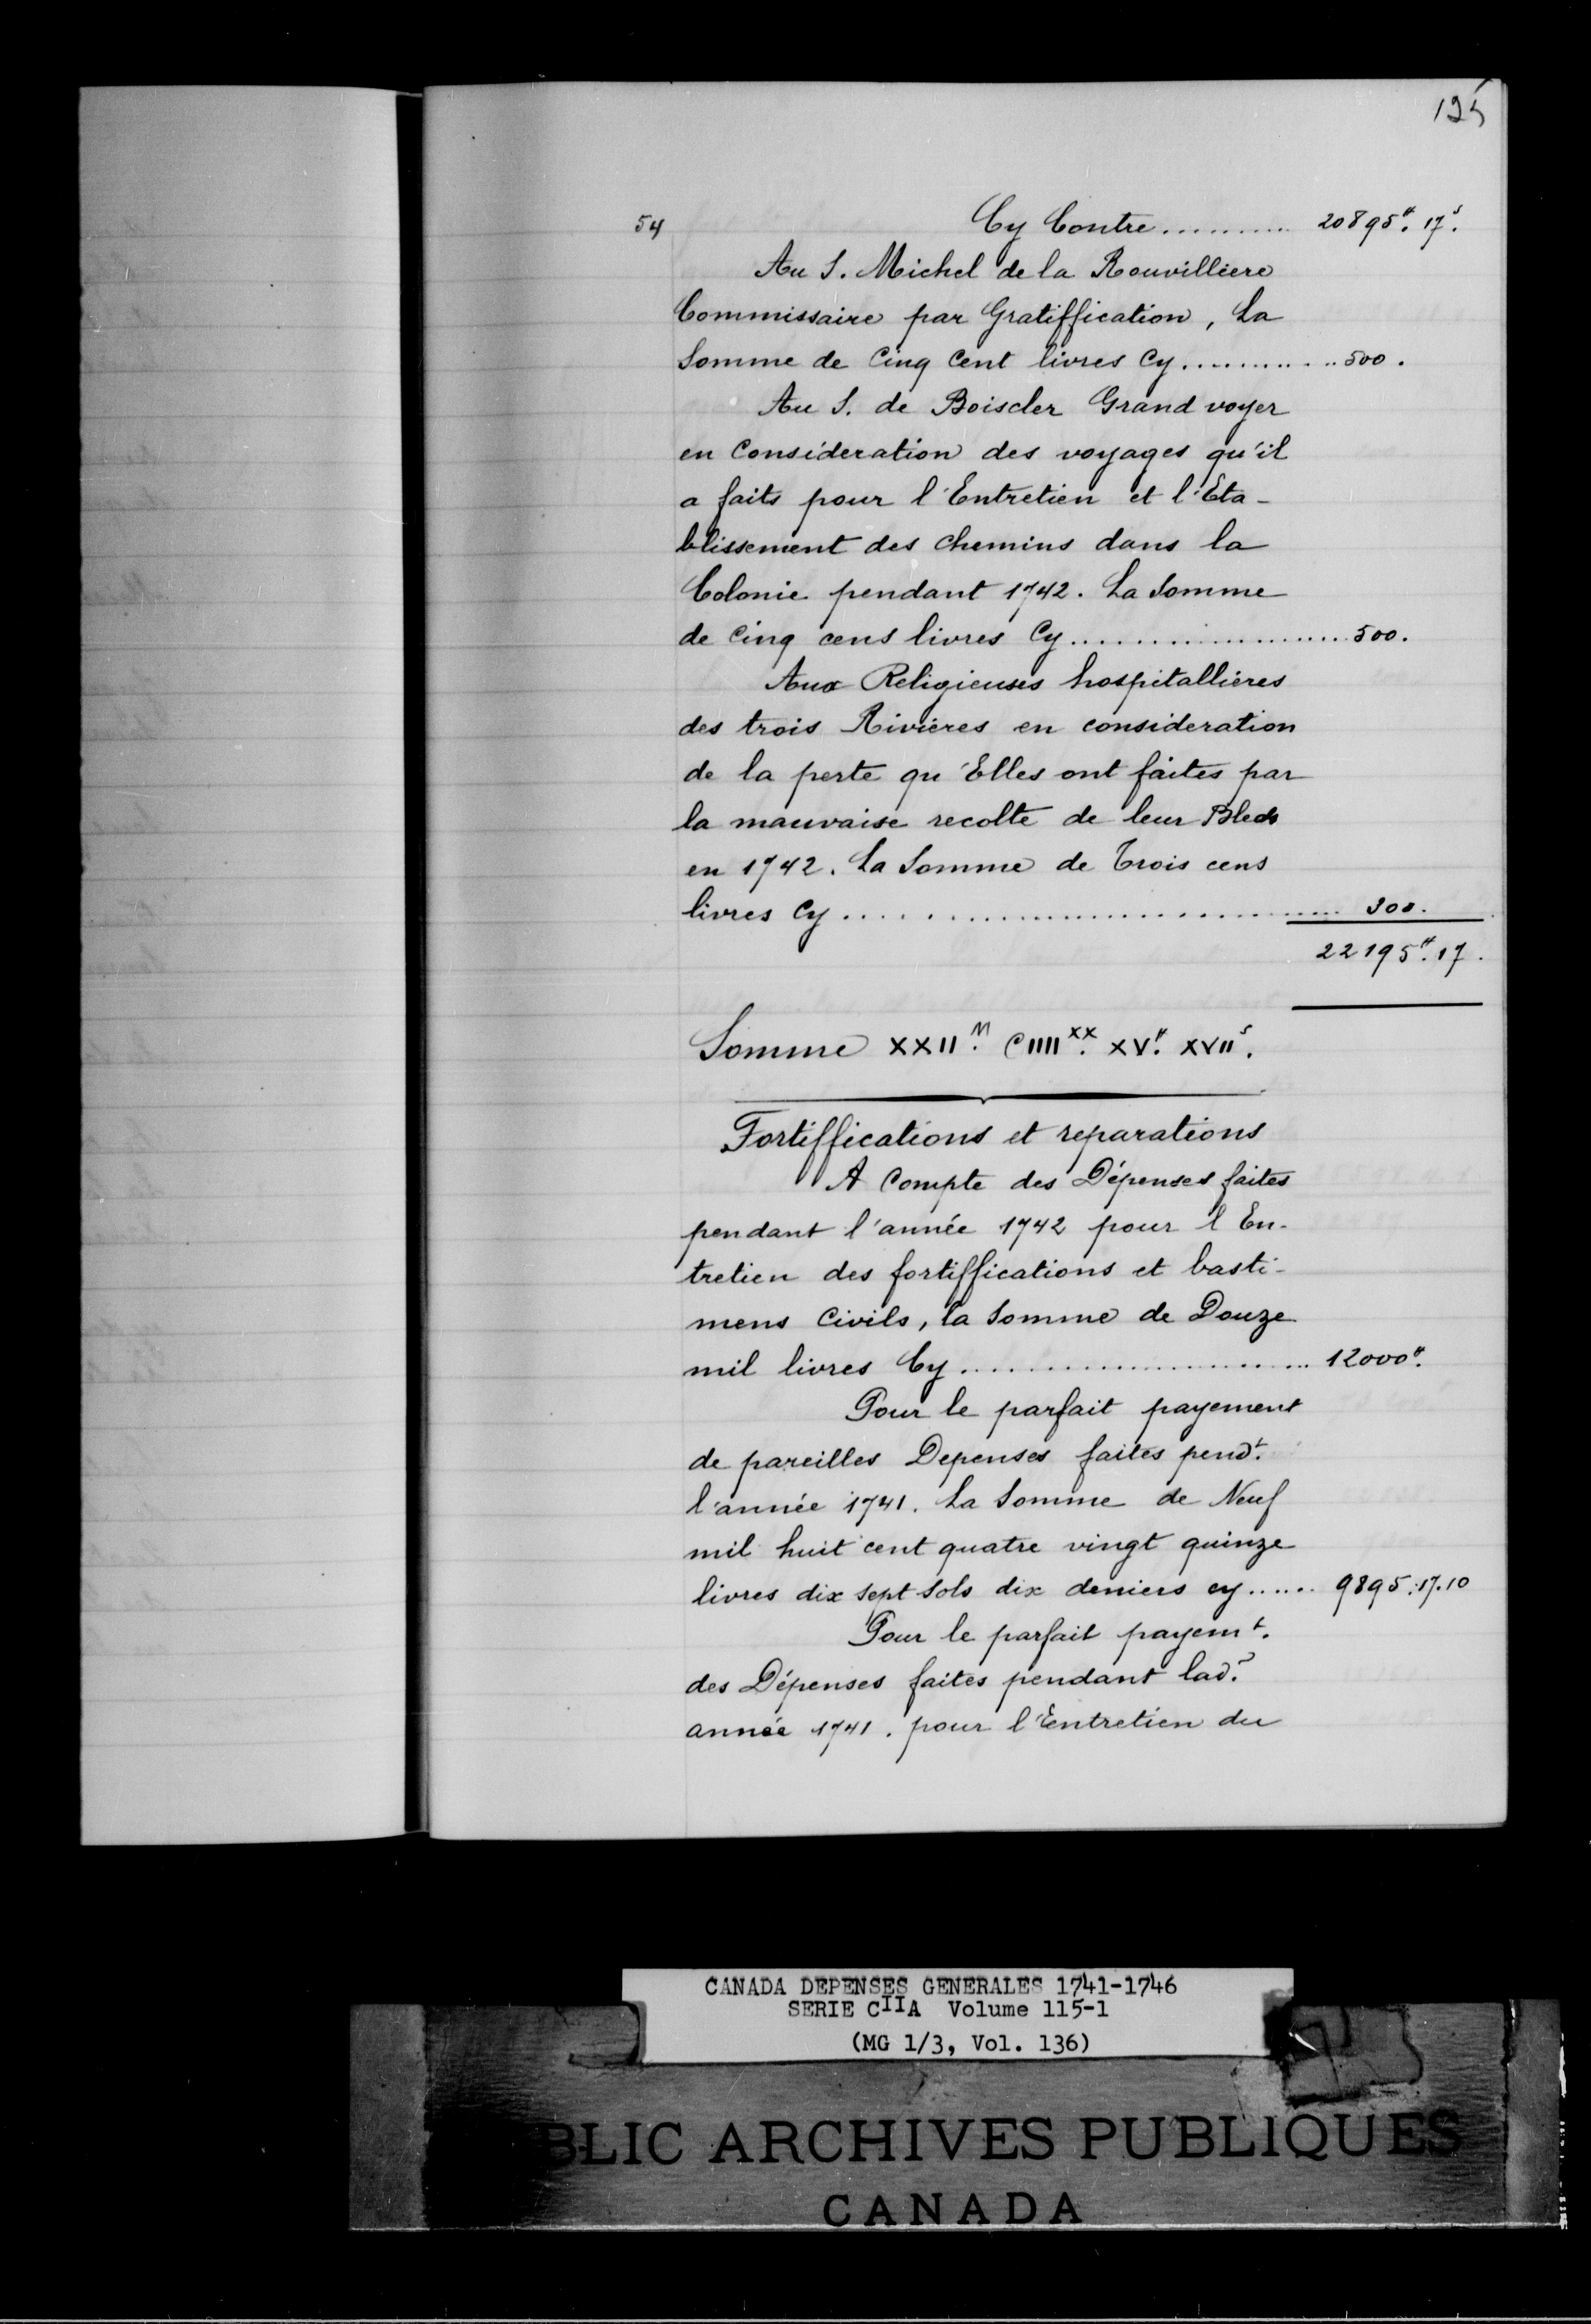 125
54 Cy Contre.......... 20895#. 17s.
Au S. Michel de la Rouvilliere
Commissaire par Gratiffication, La
Somme de Cinq Cent livres Cy............500.
Au S. de Boiscler Grand voyer
en Consideration des voyages qu'il
a faits pour l'Entretien et l'Eta-
blissement des chemins dans la
Colonie pendant 1742. La Somme
de Cinq cens livres Cy....................500.
Aux Religieuses hospitallières
des trois Rivières en consideration
de la perte qu'Elles ont faites par
la mauvaise recolte de leur Bleds
en 1742. La Somme de Trois cens
livres Cy.............................. 300.
22195#. 17.
Somme XXIIM. CIIIIXX. XV#. XVIIs.
Fortiffications et reparations
A Compte des Dépenses faites
pendant l'année 1742 pour l'En-
tretien des fortiffications et basti-
mens Civils, la Somme de Douze
mil livres Cy....................... 12000#.
Pour le parfait payement
de pareilles Depenses faites pendt.
l'année 1741. La Somme de Neuf
mil huit cent quatre vingt quinze
livres dix sept sols dix deniers cy...... 9895.17.10
Pour le parfait payemt.
des Dépenses faites pendant lade.
année 1741. pour l'Entretien du
CANADA DEPENSES GENERALES 1741-1746
SERIE CIIA Volume 115-1
(MG 1/3, Vol. 136)
BLIC ARCHIVES PUBLIQUES
CANADA